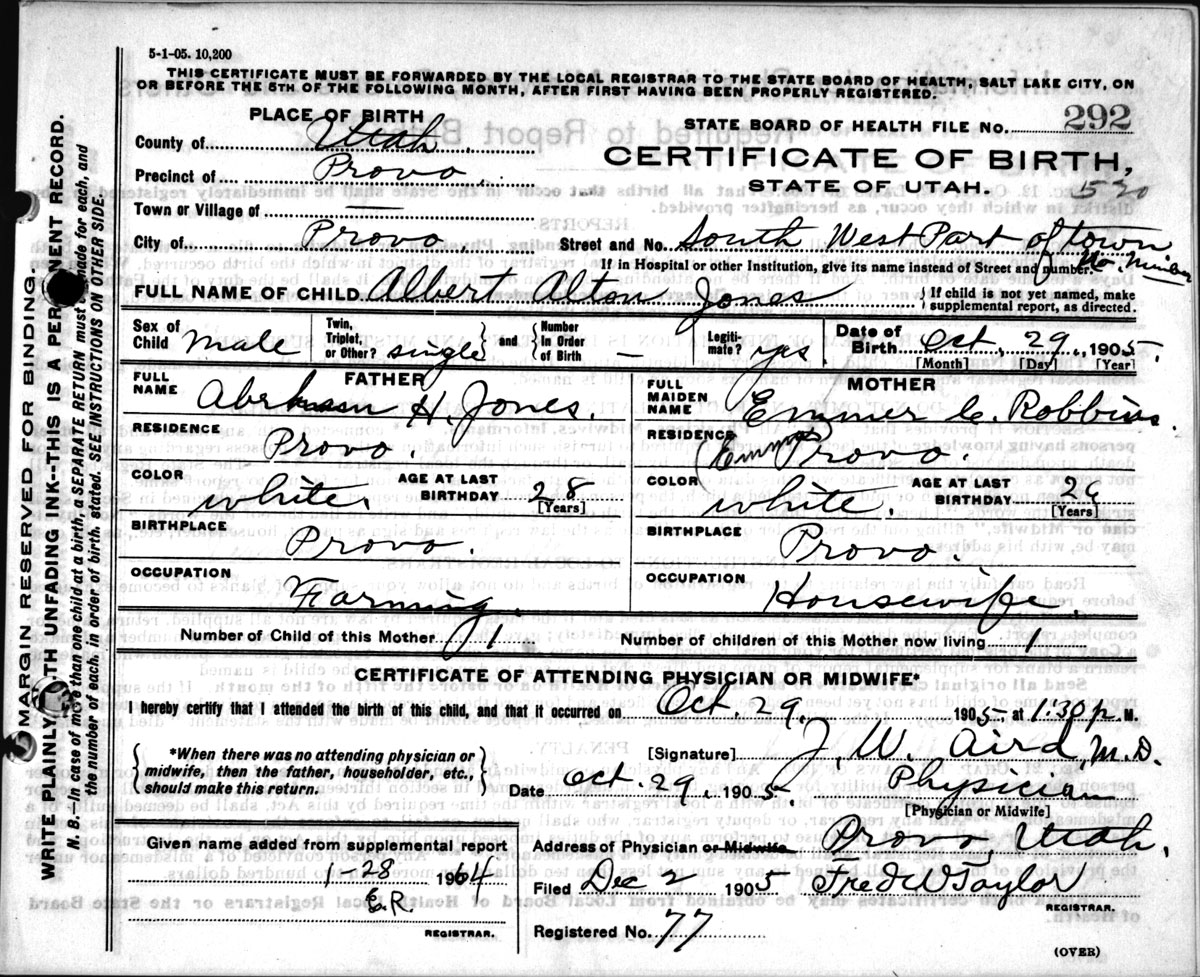 5-1-05. 10,200
THIS CERTIFICATE MUST BE FORWARDED BY THE LOCAL REGISTRAR TO THE STATE BOARD OF HEALTH, SALT LAKE CITY, ON
OR BEFORE THE 5TH OF THE FOLLOWING MONTH, AFTER FIRST HAVING BEEN PROPERLY REGISTERED.
PLACE OF BIRTH
County of Utah
Precinct of Provo
Town or Village of —
City of Provo
STATE BOARD OF HEALTH FILE NO. 292
CERTIFICATE OF BIRTH,
STATE OF UTAH.
520
Street and No. South West Part of town
If in Hospital or other Institution, give its name instead of Street and number. No. Number
FULL NAME OF CHILD Albert Alton Jones
{If child is not yet named, make supplemental report, as directed.
Sex of Child Male Twin, Triplet, or Other? single } and { Number In Order of Birth — Legitimate? yes Date of Birth Oct. 29, 1905.
[Month] [Day] [Year]
FATHER
FULL NAME H. Jones.
RESIDENCE Provo.
COLOR white. AGE AT LAST BIRTHDAY 28
[Years]
BIRTHPLACE Provo.
OCCUPATION Farming.
MOTHER
FULL MAIDEN NAME Emmer C. Robbins.
RESIDENCE (Emma) Provo.
COLOR white. AGE AT LAST BIRTHDAY
[Years]
BIRTHPLACE Provo.
OCCUPATION Housewife
Number of Child of this Mother 1 Number of children of this Mother now living 1
CERTIFICATE OF ATTENDING PHYSICIAN OR MIDWIFE*
I hereby certify that I attended the birth of this child, and that it occurred on Oct. 29. 1905, at 1:30 p. M.
{*When there was no attending physician or midwife, then the father, householder, etc., should make this return.}
[Signature] J. W. Aird, M.D.
Date Oct. 29, 1905. Physician
[Physician or Midwife]
Given name added from supplemental report
1-28 1964
E.R.
REGISTRAR.
Address of Physician or Midwife Provo, Utah.
Filed Dec 2 1905 Fred W Taylor
REGISTRAR.
Registered No. 77
(OVER)
MARGIN RESERVED FOR BINDING.
WRITE PLAINLY WITH UNFADING INK--THIS IS A PERMENENT RECORD.
N. B.—In case of more than one child at a birth, a SEPARATE RETURN must be made for each, and
the number of each, in order of birth, stated. SEE INSTRUCTIONS ON OTHER SIDE.